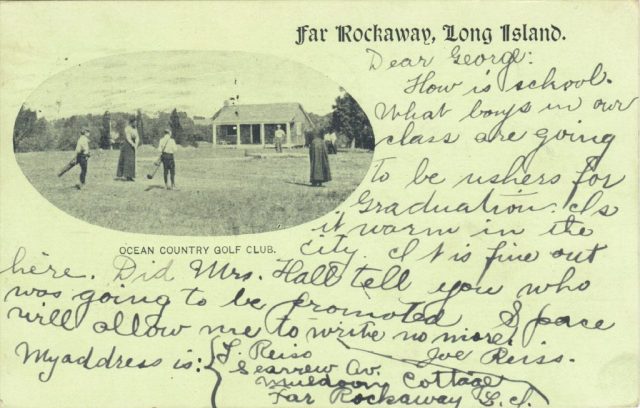 Far Rockaway, Long Island.
Dear George:
How is school.
What boys in our
class are going
to be ushers for
Graduation. Is
it warm in the
city. It is fine out
OCEAN COUNTRY GOLF CLUB.
here. Did Mrs. Hall tell you who
was going to be promoted. Space
will allow me to write no more.
Joe Reiss.
My address is: { J. Reiss
Seaview Av.
Muldoon Cottage
Far Rockaway L.I.